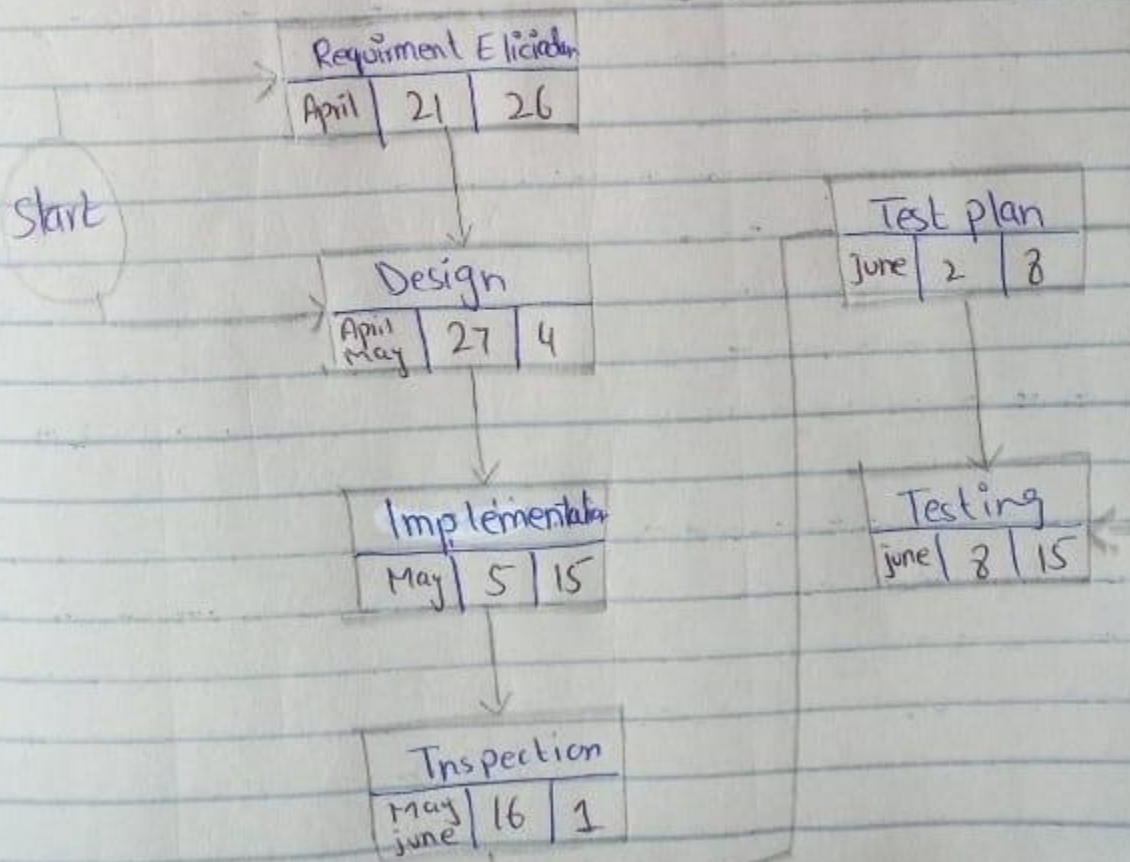 Requirment Eliciation
April 21 26
Start
Design
April May 27 4
Implementation
May 5 15
Inspection
May june 16 1
Test plan
June 2 8
Testing
june 8 15